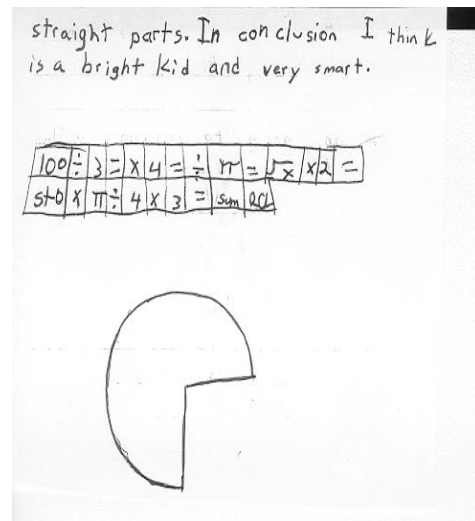 straight parts. In conclusion I think
is a bright kid and very smart.
100 ÷ 3 = x 4 = ÷ π = √x x 2 =
sto x π ÷ 4 x 3 = sum RCL